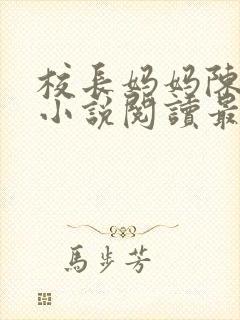 校長妈妈陳
小說閱讀最
馬步芳